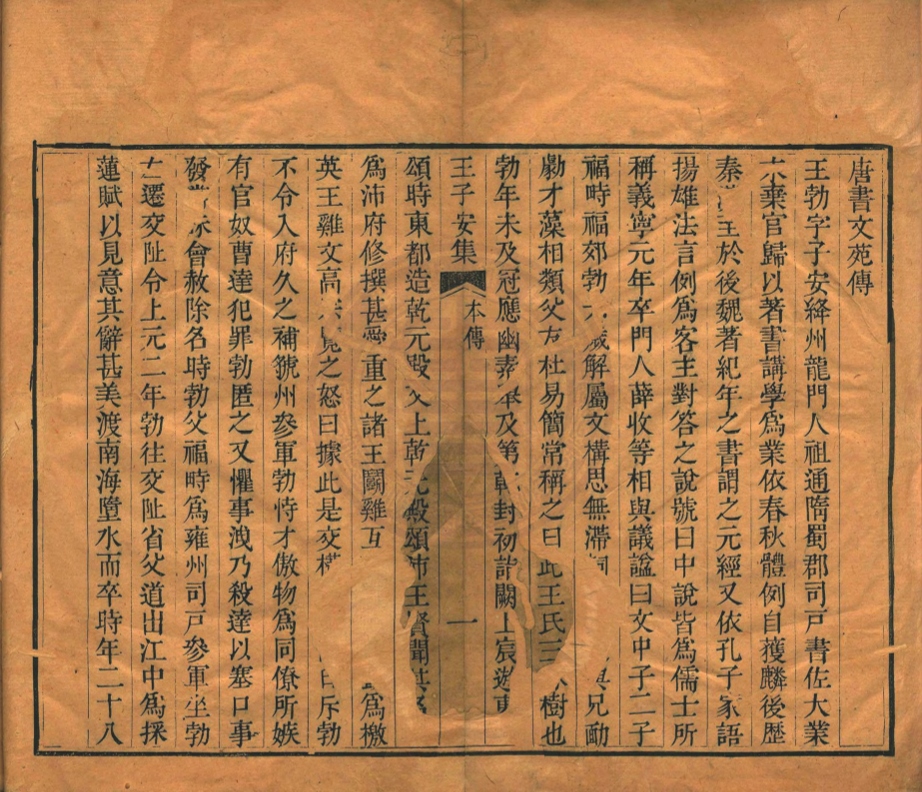 唐書文苑傳
王勃字子安絳州龍門人祖通隋蜀郡司戸書佐大業
末棄官歸以著書講學爲業依春秋體例自獲麟後歴
秦至於後魏著紀年之書謂之元經又依孔子家語
揚雄法言例爲客主對答之說號曰中說皆爲儒士所
稱義寧元年卒門人薛收等相與議諡曰文中子二子
福時福郊勃六歲解屬文構思無滯兄勔
勮才藻相類父友杜易簡常稱之曰此王氏三樹也
勃年未及冠應幽素舉及第乾封初詣闕上宸遊東
王子安集
本傳
一
頌時東都造乾元殿又上乾元殿頌沛王賢聞其名
爲沛府修撰甚愛重之諸王鬬雞互爲檄
英王雞文高宗覽之怒曰據此是交構日斥勃
不令入府久之補虢州參軍勃恃才傲物爲同僚所嫉
有官奴曹達犯罪勃匿之又懼事洩乃殺達以塞口事
發當誅會赦除名時勃父福時爲雍州司戸參軍坐勃
左遷交趾令上元二年勃往交趾省父道出江中爲採
蓮賦以見意其辭甚美渡南海墮水而卒時年二十八